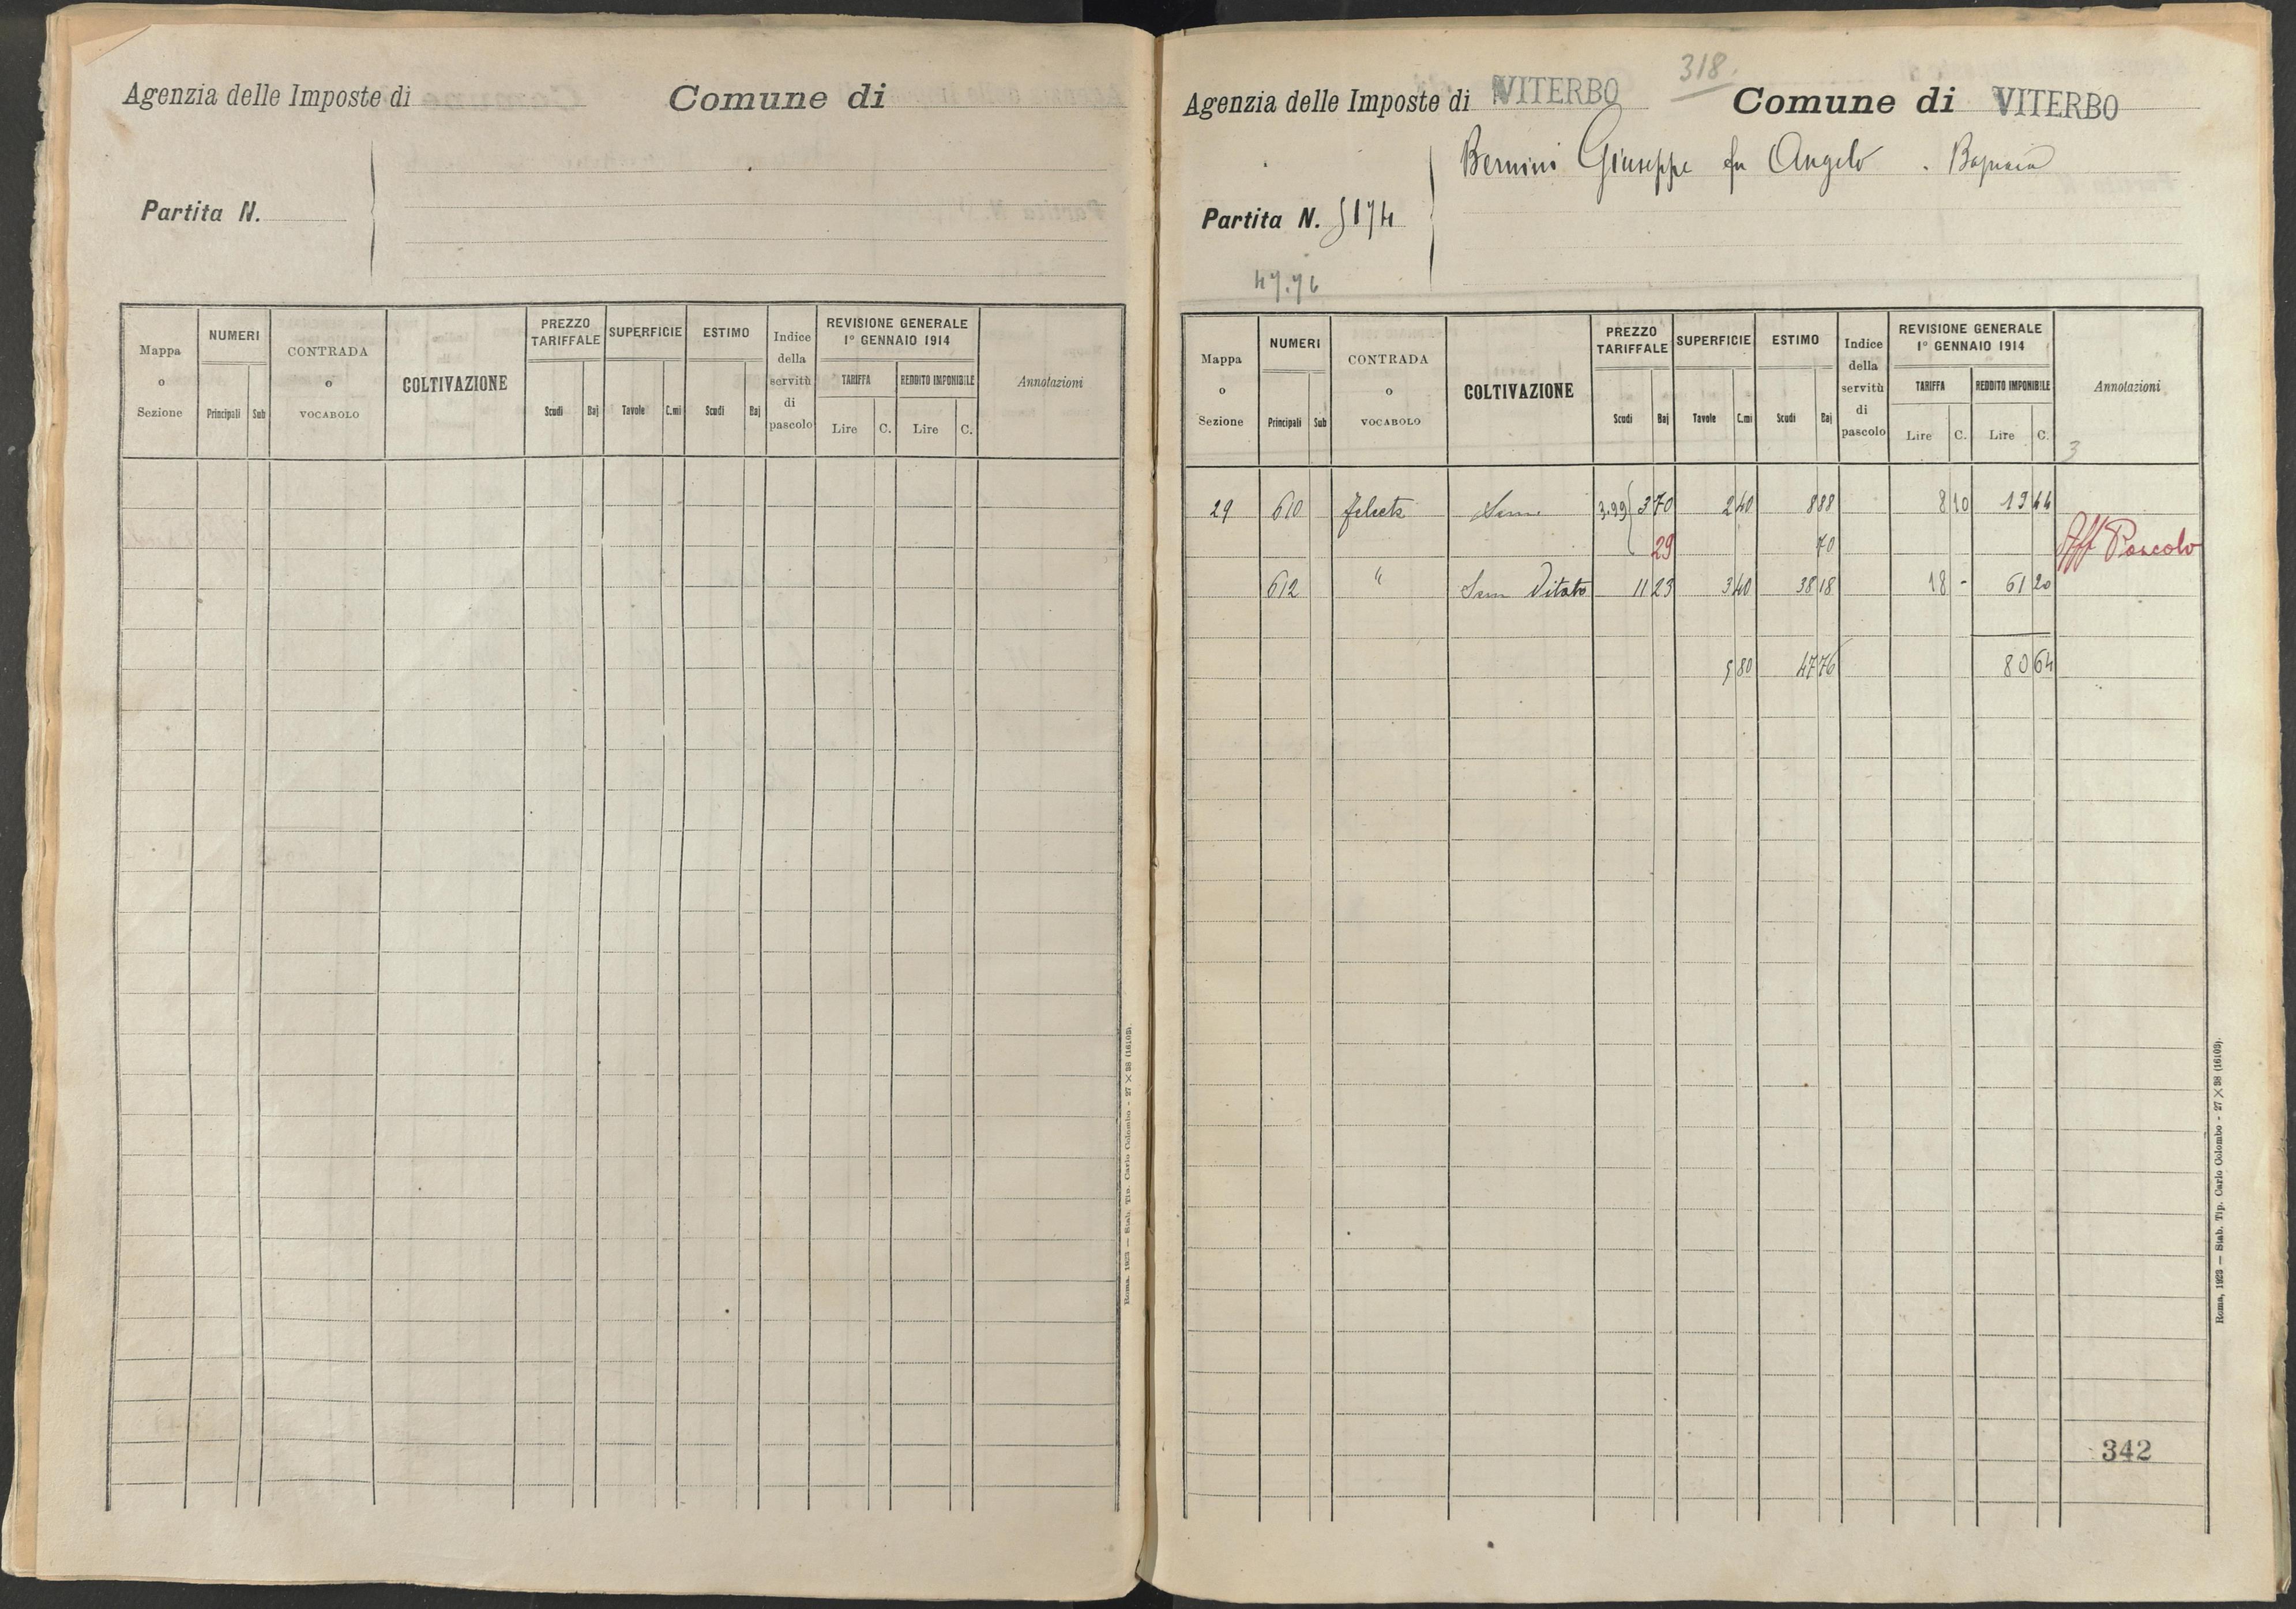 Agenzia delle Imposte di Comune di
Partita N.
Mappa o Sezione NUMERI Principali Sub CONTRADA o VOCABOLO COLTIVAZIONE PREZZO TARIFFALE Scudi Baj SUPERFICIE Tavole C.mi ESTIMO Scudi Baj Indice della servitù di pascolo REVISIONE GENERALE 1° GENNAIO 1914 TARIFFA Lire C. REDDITO IMPONIBILE Lire C. Annotazioni
Roma, 1923 — Stab. Tip. Carlo Colombo - 27 × 38 (16103).
318.
Agenzia delle Imposte di VITERBO Comune di VITERBO
Bernini Giuseppe fu Angelo . Bagnaia
Partita N. 5174
47.76
Mappa o Sezione NUMERI Principali Sub CONTRADA o VOCABOLO COLTIVAZIONE PREZZO TARIFFALE Scudi Baj SUPERFICIE Tavole C.mi ESTIMO Scudi Baj Indice della servitù di pascolo REVISIONE GENERALE 1° GENNAIO 1914 TARIFFA Lire C. REDDITO IMPONIBILE Lire C. Annotazioni
3
29 610 Sem 3.99 3 70 2 40 8 88 8 10 19 44
29 70 Aff Pascolo
612 " Sem Vitato 11 23 3 40 38 18 18 - 61 20
5 80 47 76 80 64
342
Roma, 1923 — Stab. Tip. Carlo Colombo - 27 × 38 (16103).